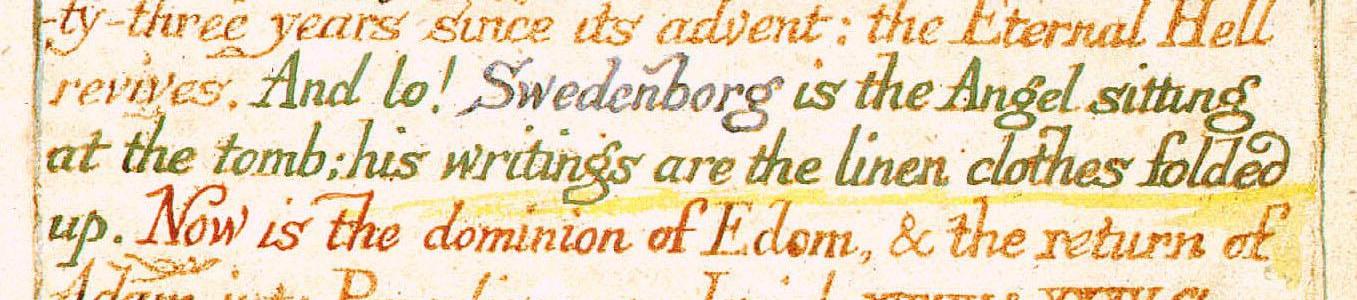 -ty-three years since its advent: the Eternal Hell
revives. And lo! Swedenborg is the Angel sitting
at the tomb; his writings are the linen clothes folded
up. Now is the dominion of Edom, & the return of
Adam into